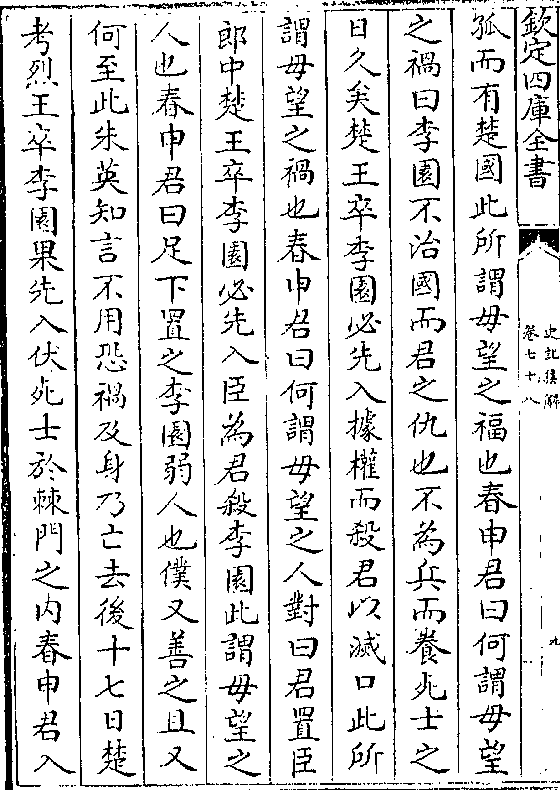 欽定四庫全書
史記集解
卷七十八
九
孤而有楚國此所謂毋望之福也春申君曰何謂毋望
之禍曰李園不治國而君之仇也不為兵而養死士之
日久矣楚王卒李園必先入據權而殺君以滅口此所
謂毋望之禍也春申君曰何謂毋望之人對曰君置臣
郎中楚王卒李園必先入臣為君殺李園此謂毋望之
人也春申君曰足下置之李園弱人也僕又善之且又
何至此朱英知言不用恐禍及身乃亡去後十七日楚
考烈王卒李園果先入伏死士於棘門之内春申君入